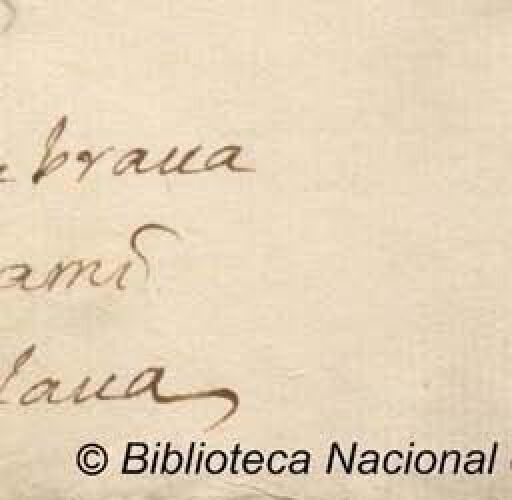 braua
ami
laua
© Biblioteca Nacional